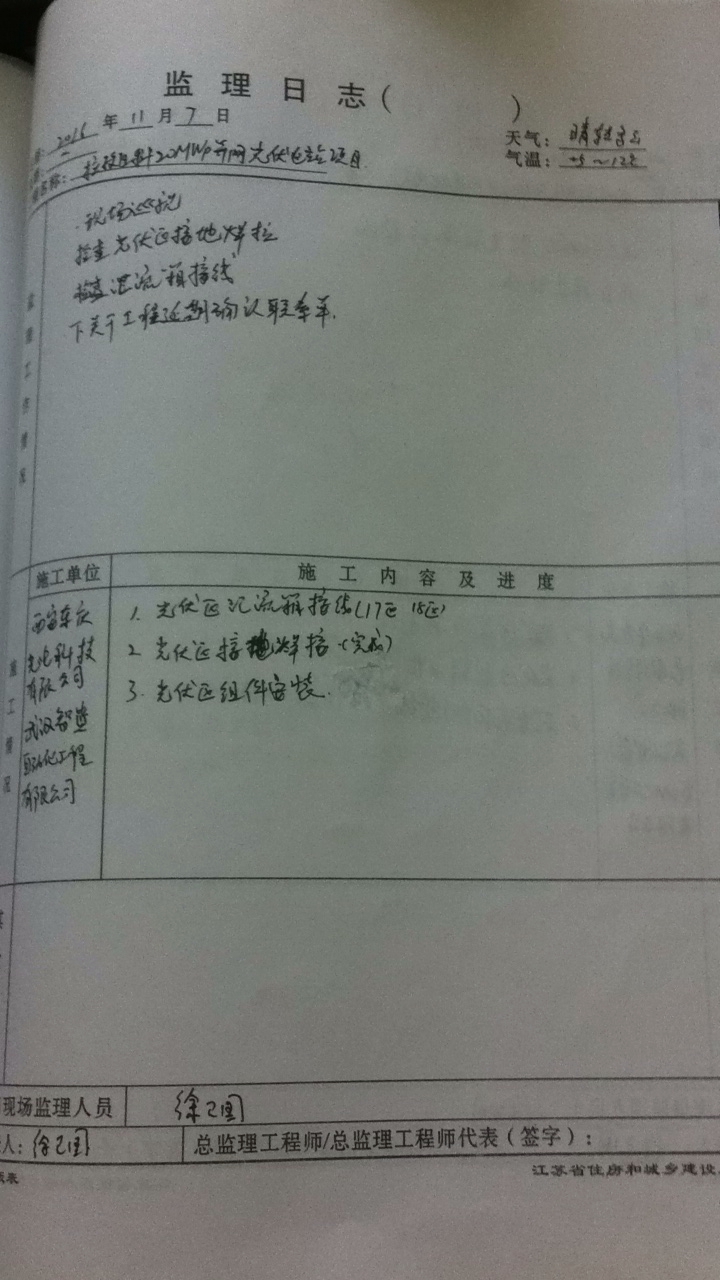 监 理 日 志 ( )
2016 年 11 月 7 日
天气： 晴转多云
名称： 20MWp并网光伏电站项目
气温： +5～12℃
现场巡视
检查光伏区接地焊接
检查汇流箱接线
下关于工程延期确认联系单.
监理工作情况
施工单位
施 工 内 容 及 进 度
施工情况
光电科技
有限公司
武汉智造
自动化工程
有限公司
1. 光伏区汇流箱接线(17区 18区)
2. 光伏区接地焊接(完成)
3. 光伏区组件安装.
现场监理人员
徐
人: 徐
总监理工程师/总监理工程师代表(签字)：
江苏省住房和城乡建设